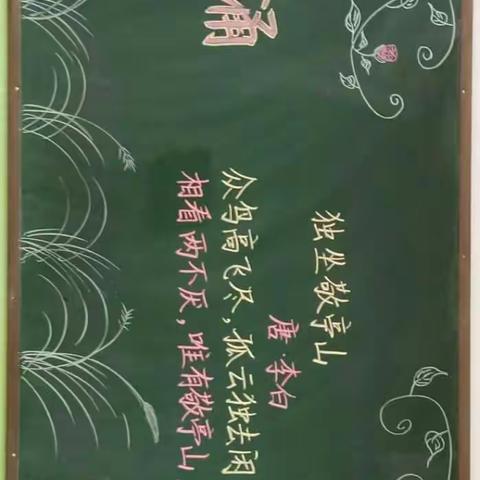 诵
独坐敬亭山
唐·李白
众鸟高飞尽，孤云独去闲
相看两不厌，唯有敬亭山